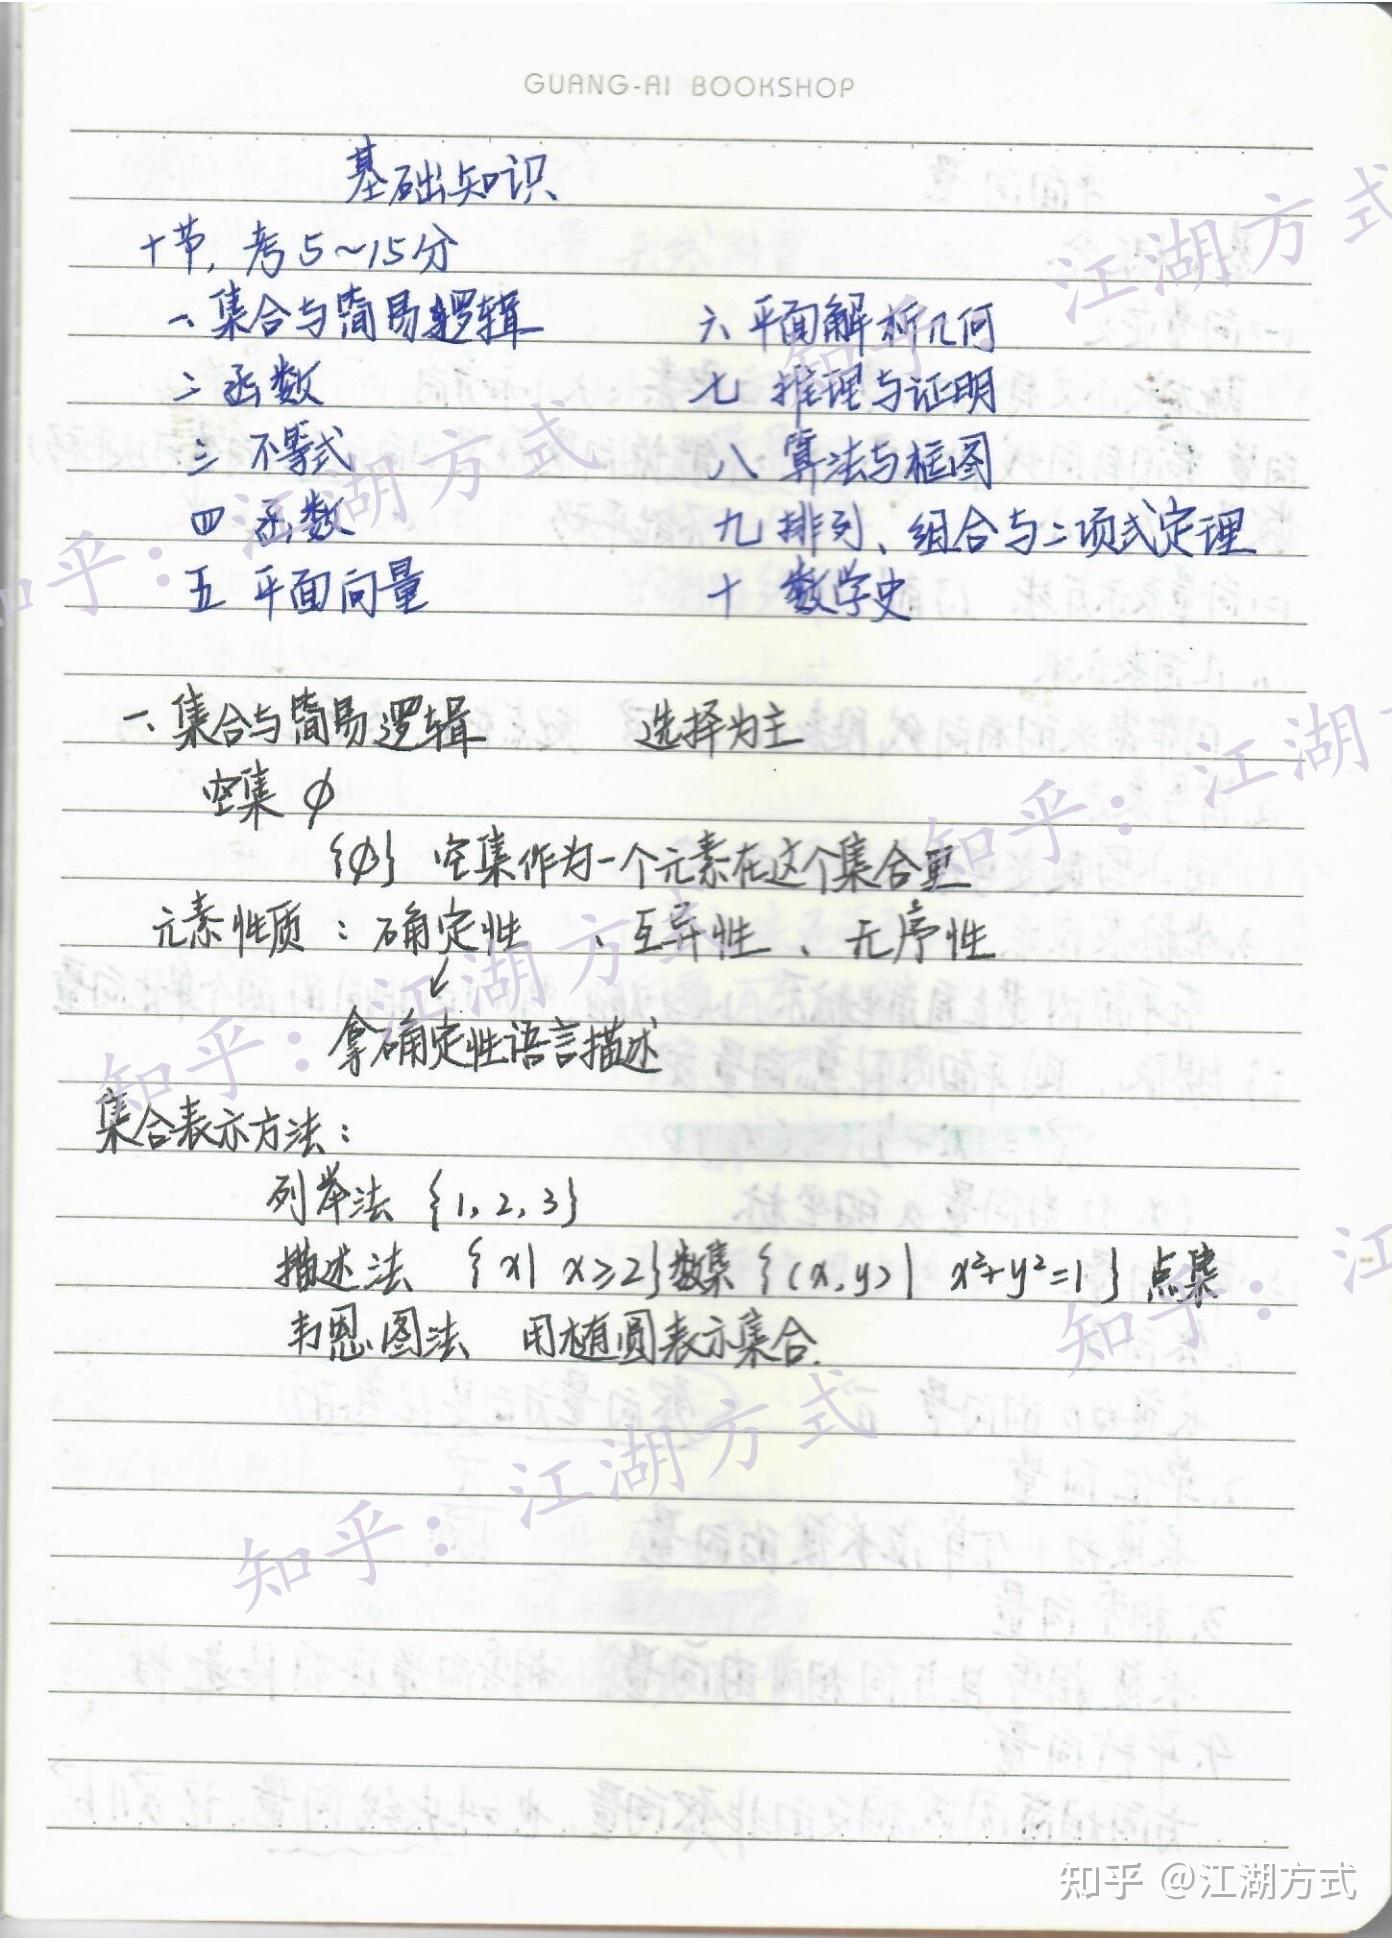 GUANG-AI BOOKSHOP
基础知识
十节, 考5~15分
一、集合与简易逻辑 六 平面解析几何
二 函数 七 推理与证明
三 不等式 八 算法与框图
四 函数 九 排列、组合与二项式定理
五 平面向量 十 数学史
一、集合与简易逻辑 选择为主
空集 ∅
{∅} 空集作为一个元素在这个集合里
元素性质：确定性、互异性、无序性
↙
拿确定性语言描述
集合表示方法：
列举法 {1, 2, 3}
描述法 {x| x≥2}数集 {(x,y)| x²+y²=1} 点集
韦恩图法 用椭圆表示集合.
知乎：江湖方式
知乎 @江湖方式